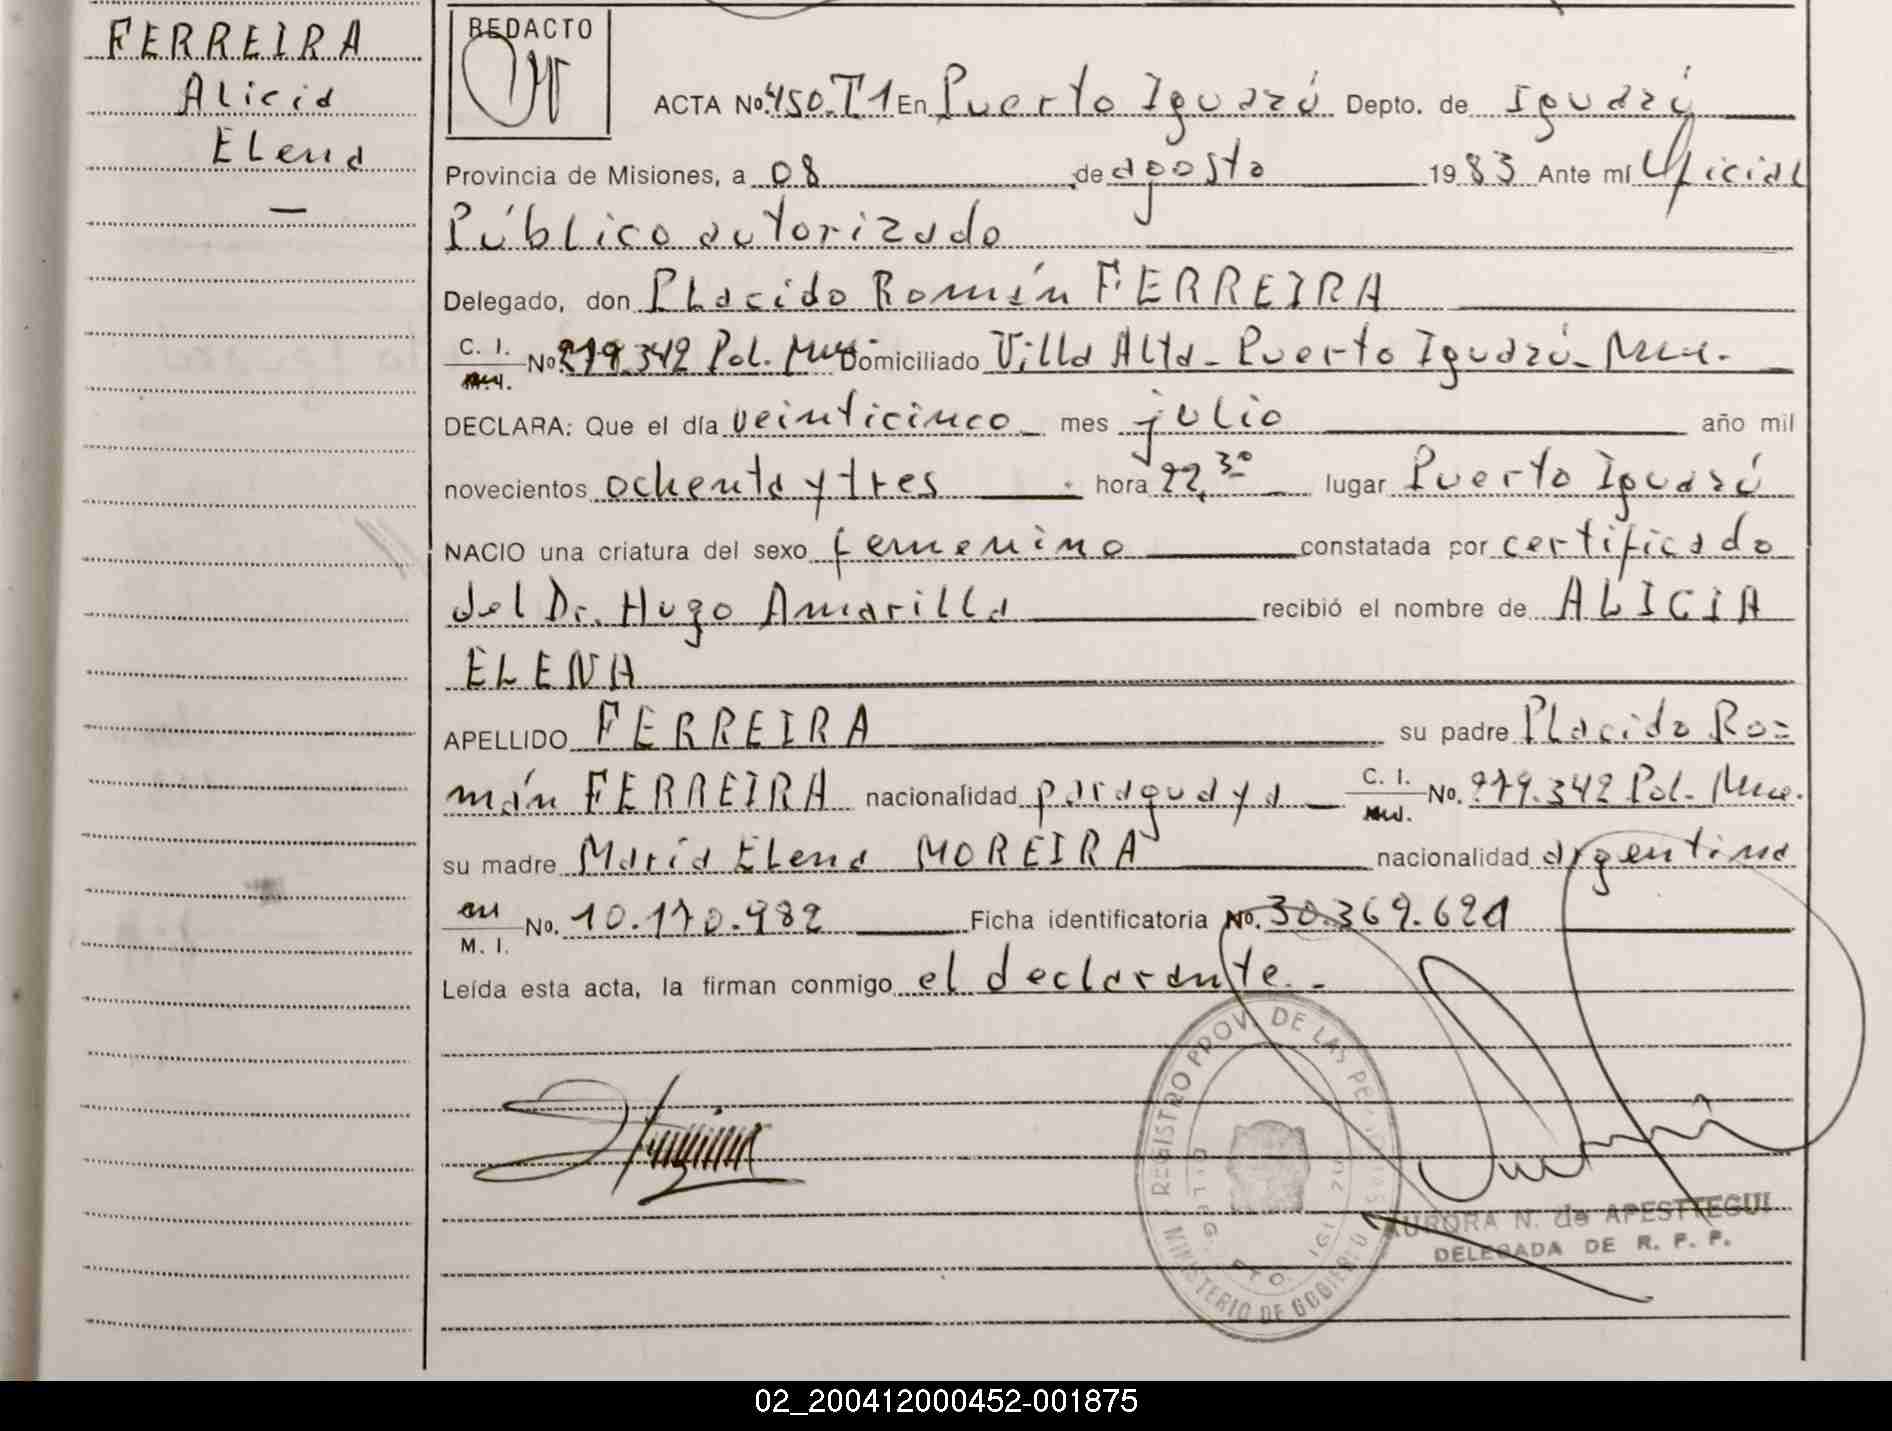 FERREIRA
Alicia
Elena
—
REDACTO
ACTA No. 450.T1 En Puerto Iguazú Depto. de Iguazú
Provincia de Misiones, a 08 de agosto 1983 Ante mí Oficial
Público autorizado
Delegado, don Placido Román FERREIRA
C. I. No 279.342 Pol. Mnes. Domiciliado Villa Alta - Puerto Iguazú - Mnes.
DECLARA: Que el día veinticinco mes julio año mil
novecientos ochenta y tres hora 22,30 lugar Puerto Iguazú
NACIO una criatura del sexo femenino constatada por certificado
del Dr. Hugo Amarilla recibió el nombre de ALICIA
ELENA
APELLIDO FERREIRA su padre Placido Ro=
mán FERREIRA nacionalidad paraguaya C. I. No. 279.342 Pol. Mnes.
su madre María Elena MOREIRA nacionalidad argentina
M. I. No. 10.170.982 Ficha identificatoria No. 30.369.621
Leída esta acta, la firman conmigo el declarante.-
REGISTRO PROV. DE LAS PERSONAS
MINISTERIO DE GOBIERNO
DELEG. PTO. IGUAZU
AURORA N. de APESTTEGUI
DELEGADA DE R. P. P.
02_200412000452-001875